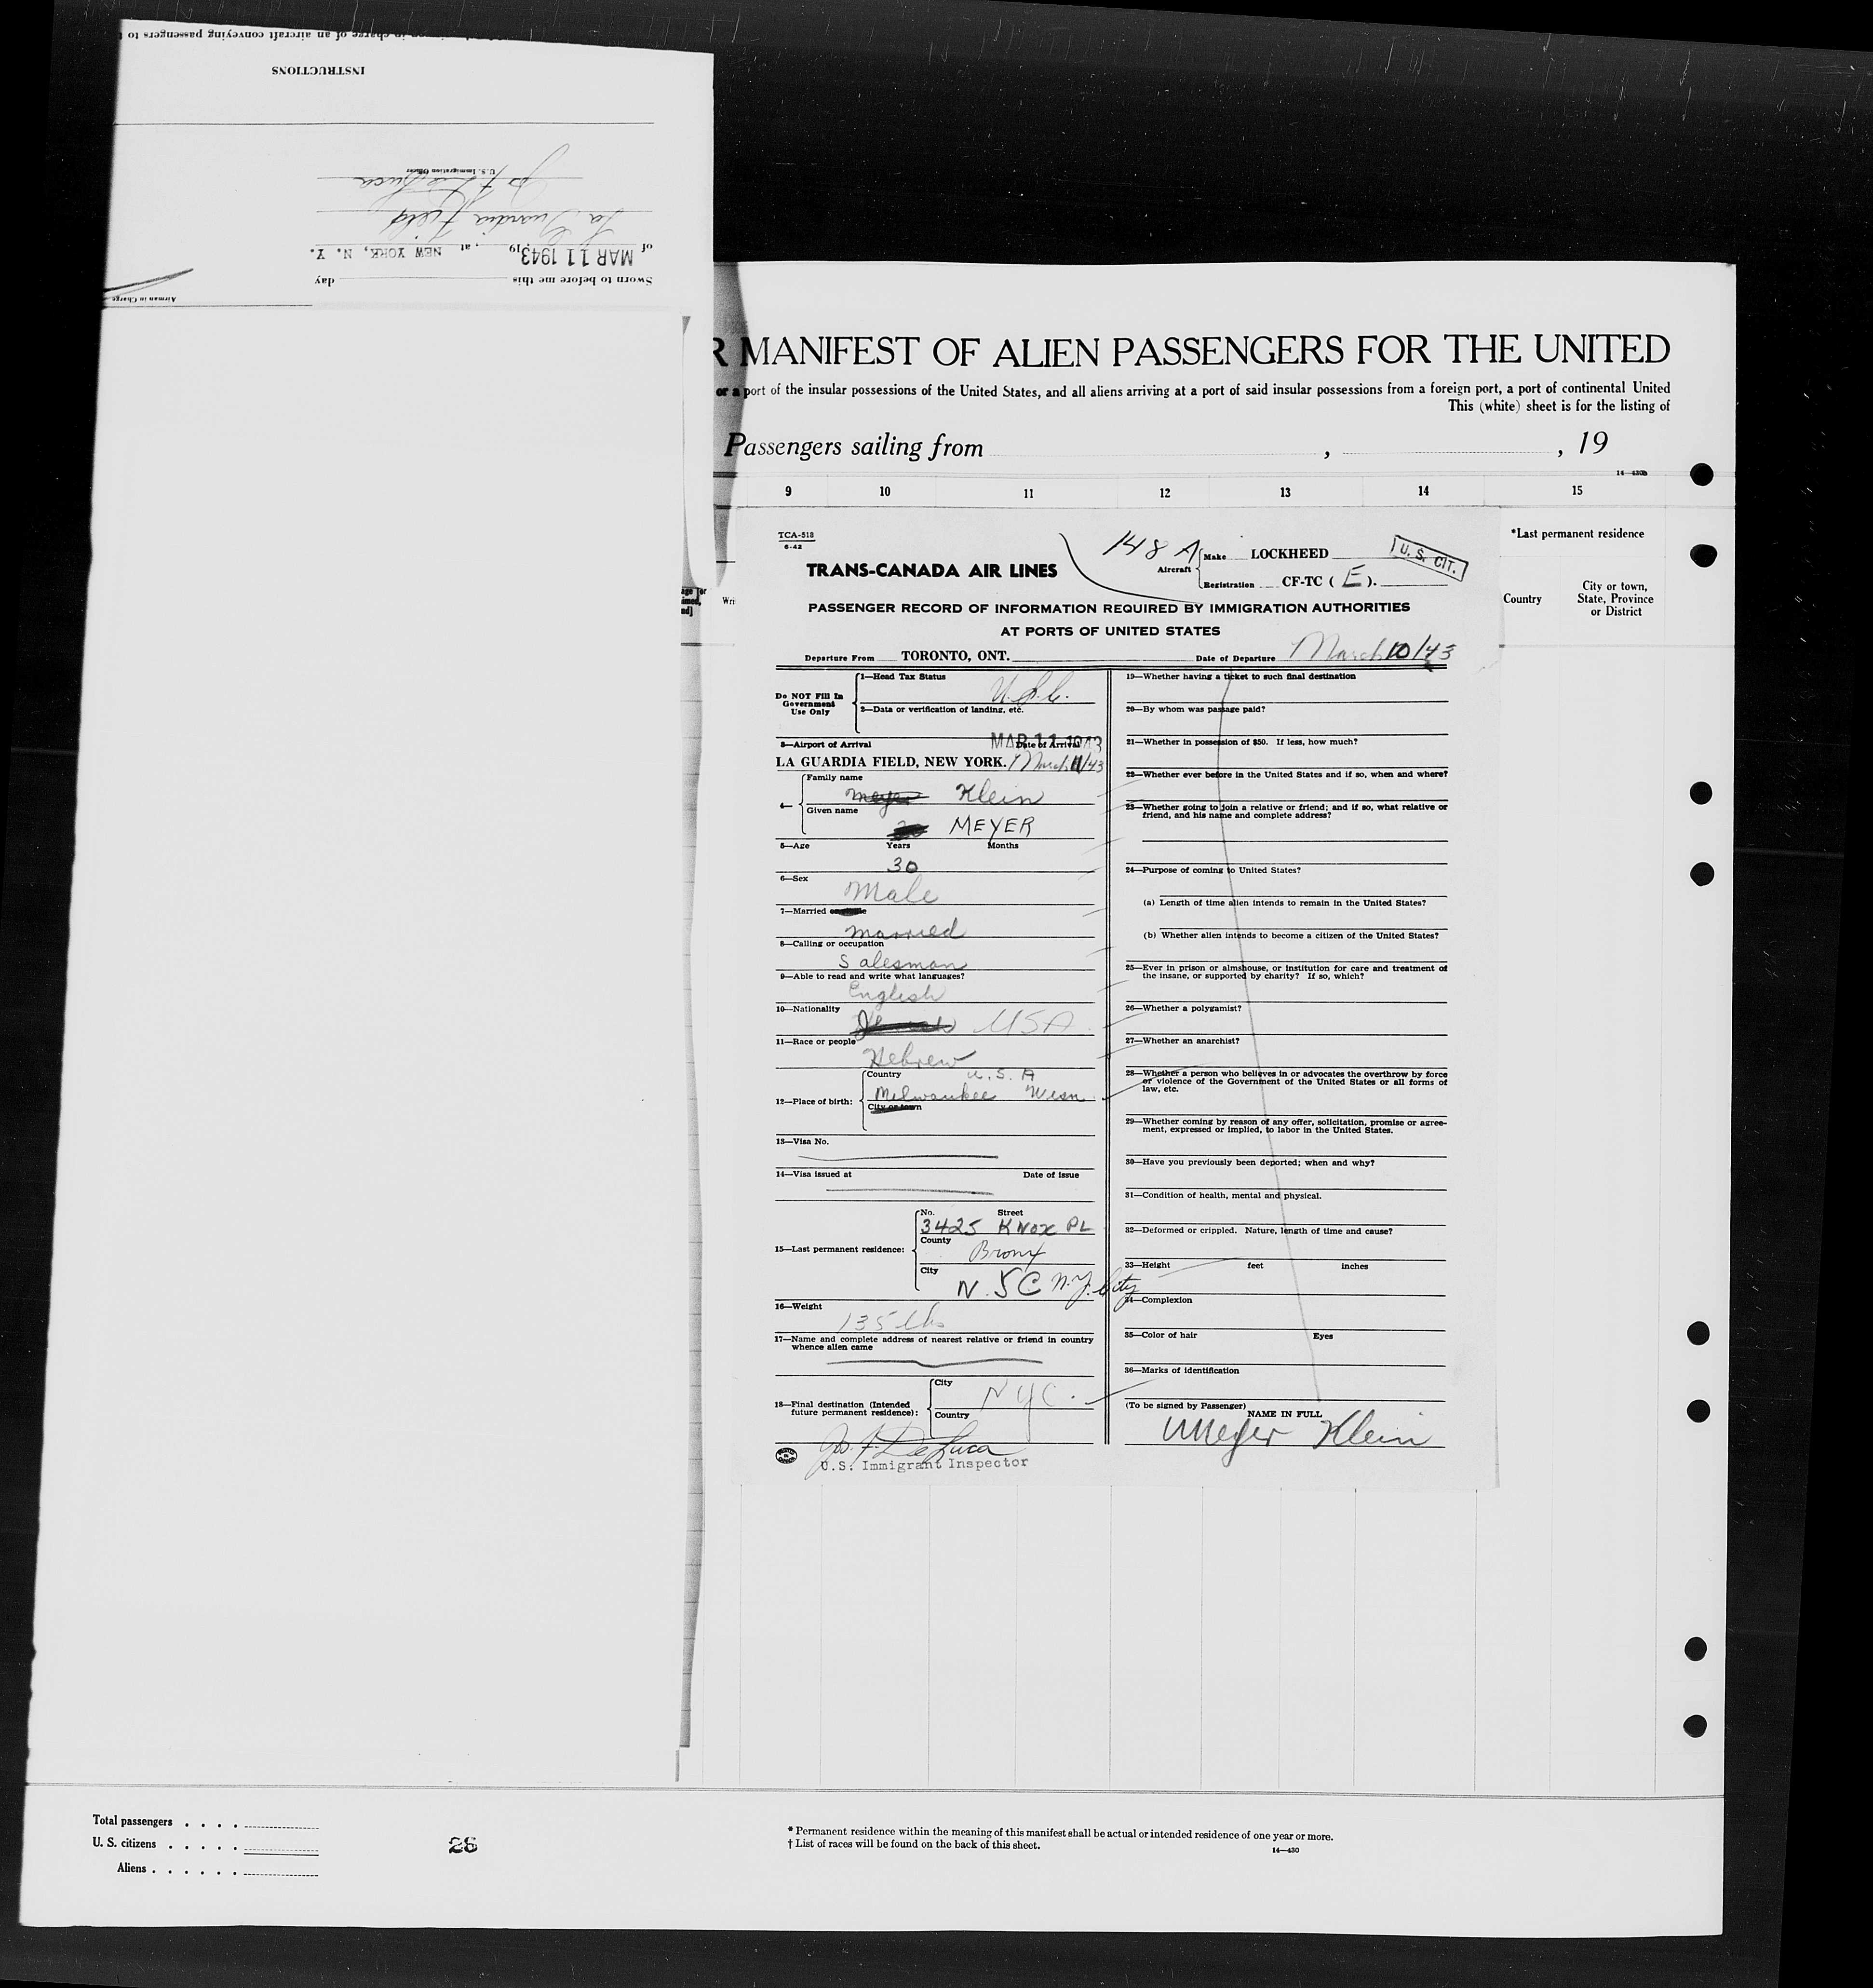 INSTRUCTIONS
Sworn to before me this day
of MAR 11 1943, 19 , at NEW YORK, N. Y.
La Guardia Field
U.S. Immigration Officer
Airman in Charge
MANIFEST OF ALIEN PASSENGERS FOR THE UNITED
or a port of the insular possessions of the United States, and all aliens arriving at a port of said insular possessions from a foreign port, a port of continental United
This (white) sheet is for the listing of
Passengers sailing from , , 19
14—430b
9 10 11 12 13 14 15
*Last permanent residence
Country
City or town, State, Province or District
TCA-518
6-42
148 A
TRANS-CANADA AIR LINES
Aircraft
Make LOCKHEED
Registration CF-TC ( E ).
U. S. CIT.
PASSENGER RECORD OF INFORMATION REQUIRED BY IMMIGRATION AUTHORITIES
AT PORTS OF UNITED STATES
Departure From TORONTO, ONT. Date of Departure March 10/43
Do NOT Fill In Government Use Only
1—Head Tax Status
U.S.C.
2—Data or verification of landing, etc.
3—Airport of Arrival Date of Arrival
MAR 11 1943
LA GUARDIA FIELD, NEW YORK. March 11/43
4—
Family name
Meyer Klein
Given name
MEYER
5—Age Years Months
30
6—Sex
Male
7—Married
Married
8—Calling or occupation
Salesman
9—Able to read and write what languages?
English
10—Nationality
USA
11—Race or people
Hebrew
12—Place of birth:
Country U.S.A
Milwaukee Wisn
City or town
13—Visa No.
14—Visa issued at Date of issue
15—Last permanent residence:
No. Street
3425 KNOX PL
County
Bronx
City
N.Y.C N.Y. City
16—Weight
135 lbs
17—Name and complete address of nearest relative or friend in country whence alien came
18—Final destination (Intended future permanent residence):
City
NYC.
Country
Jos. F. DeLuca
U.S. Immigrant Inspector
19—Whether having a ticket to such final destination
20—By whom was passage paid?
21—Whether in possession of $50. If less, how much?
22—Whether ever before in the United States and if so, when and where?
23—Whether going to join a relative or friend; and if so, what relative or
friend, and his name and complete address?
24—Purpose of coming to United States?
(a) Length of time alien intends to remain in the United States?
(b) Whether alien intends to become a citizen of the United States?
25—Ever in prison or almshouse, or institution for care and treatment of
the insane, or supported by charity? If so, which?
26—Whether a polygamist?
27—Whether an anarchist?
28—Whether a person who believes in or advocates the overthrow by force
or violence of the Government of the United States or all forms of
law, etc.
29—Whether coming by reason of any offer, solicitation, promise or agree-
ment, expressed or implied, to labor in the United States.
30—Have you previously been deported; when and why?
31—Condition of health, mental and physical.
32—Deformed or crippled. Nature, length of time and cause?
33—Height feet inches
34—Complexion
35—Color of hair Eyes
36—Marks of identification
(To be signed by Passenger)
NAME IN FULL
Meyer Klein
Total passengers . . . .
U. S. citizens . . . . .
Aliens . . . . . .
28
* Permanent residence within the meaning of this manifest shall be actual or intended residence of one year or more.
† List of races will be found on the back of this sheet.
14—430